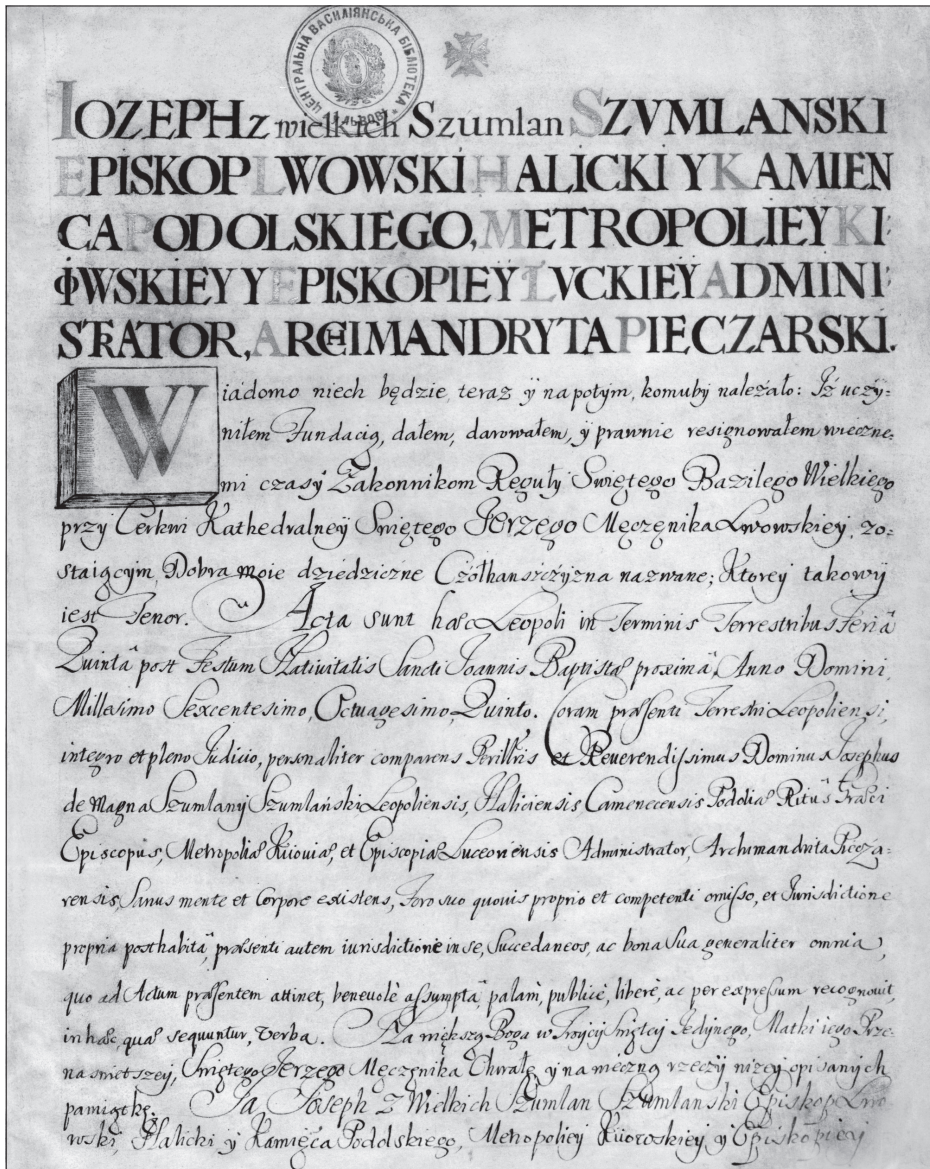 ЦЕНТРАЛЬНА ВАСИЛІЯНСЬКА БІБЛІОТЕКА * У ЛЬВОВІ *
IOZEPH z wielkich Szumlan SZVMLANSKI
EPISKOP LWOWSKI HALICKI Y KAMIEN
CA PODOLSKIEGO, METROPOLIEY KI:
IOWSKIEY Y EPISKOPIEY LVCKIEY ADMINI:
STRATOR, ARCHIMANDRYTA PIECZARSKI.
Wiadomo niech będzie, teraz ÿ napotym, komuby należało: Iż uczy:
niłem Fundacią, dałem, darowałem, ÿ prawnie resignowałem wieczne:
mi czasÿ Zakonnikom Regułÿ Swiętego Bazilego Wielkiego
przy Cerkwi Kathedralneÿ Swiętego Jerzego Męczęnika Lwowskieÿ, zo:
staiącÿm, Dobra moie dziedziczne Czołhanszczÿzna nazwane; Ktoreÿ takowÿ
iest Tenor. Acta sunt hæc Leopoli in Terminis Terrestribus Feriâ
Quintâ post Festum Nativitatis Sancti Joannis Baptistæ proximâ, Anno Domini,
Millesimo Sexcentesimo, Octuagesimo, Quinto. Coram præsenti Terrestri Leopoliensi,
integro et pleno Judicio, personaliter comparens Perillris et Reverendissimus Dominus Josephus
de Magna Szumlany Szumlański Leopoliensis, Haliciensis Camenecensis Podoliæ Ritûs Græci
Episcopus, Metropoliæ Kiioviæ, et Episcopiæ Luceoriensis Administrator, Archimandrita Pieczá:
rensis, Sanus mente et Corpore existens, Foro suo quovis proprio et competenti omisso, et Iurisdictione
propria posthabitâ, præsenti autem iurisdictione in se, Succedaneos, ac bona Sua generaliter omnia,
quo ad Actum præsentem attinet, benevolè assumptâ, palàm, publicè, liberè, ac per expressum recognovit,
in hæc, quæ sequuntur, verba. Na większą Boga w Troycÿ Swiętey Jedynego, Matki iego Prze:
naswietszeÿ, Swiętego Jerzego Męczęnika Chwałę, ÿ na wieczną rzeczÿ niżeÿ opisanÿch
pamiątkę. Ja Joseph z Wielkich Szumlan Szumlanski Episkop Lwo
wski, Halicki ÿ Kamięca Podolskiego, Metropolieÿ Kiiowskieÿ, ÿ Episkopieÿ